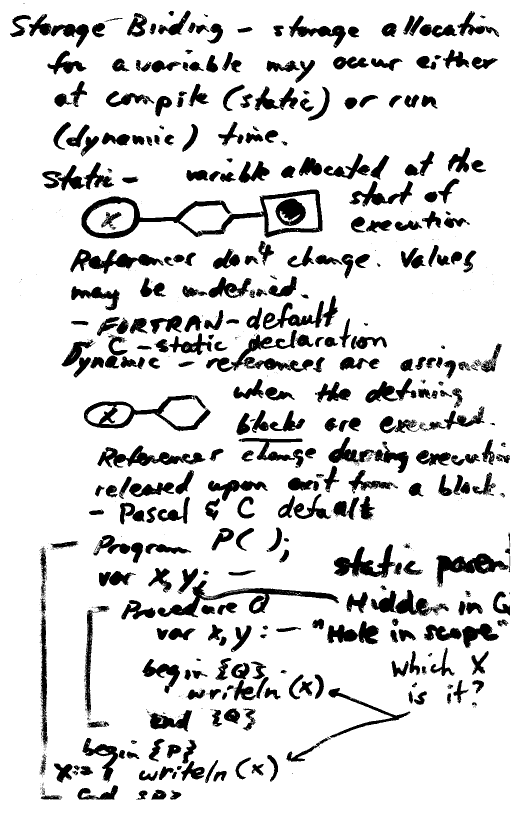 Storage Binding - storage allocation
for a variable may occur either
at compile (static) or run
(dynamic) time.
Static - variable allocated at the
start of
execution
X
References don't change. Values
may be undefined.
- FORTRAN - default
C - static declaration
Dynamic - references are assigned
when the defining
blocks are executed.
X
References change during execution
released upon exit from a block.
- Pascal & C default
Program P( );
var x, y; -
static parent
Hidden in Q
Procedure Q
var x, y : - "Hole in scope"
begin {Q}
writeln (x)
end {Q}
which X
is it?
begin {P}
writeln (x)
end {P}